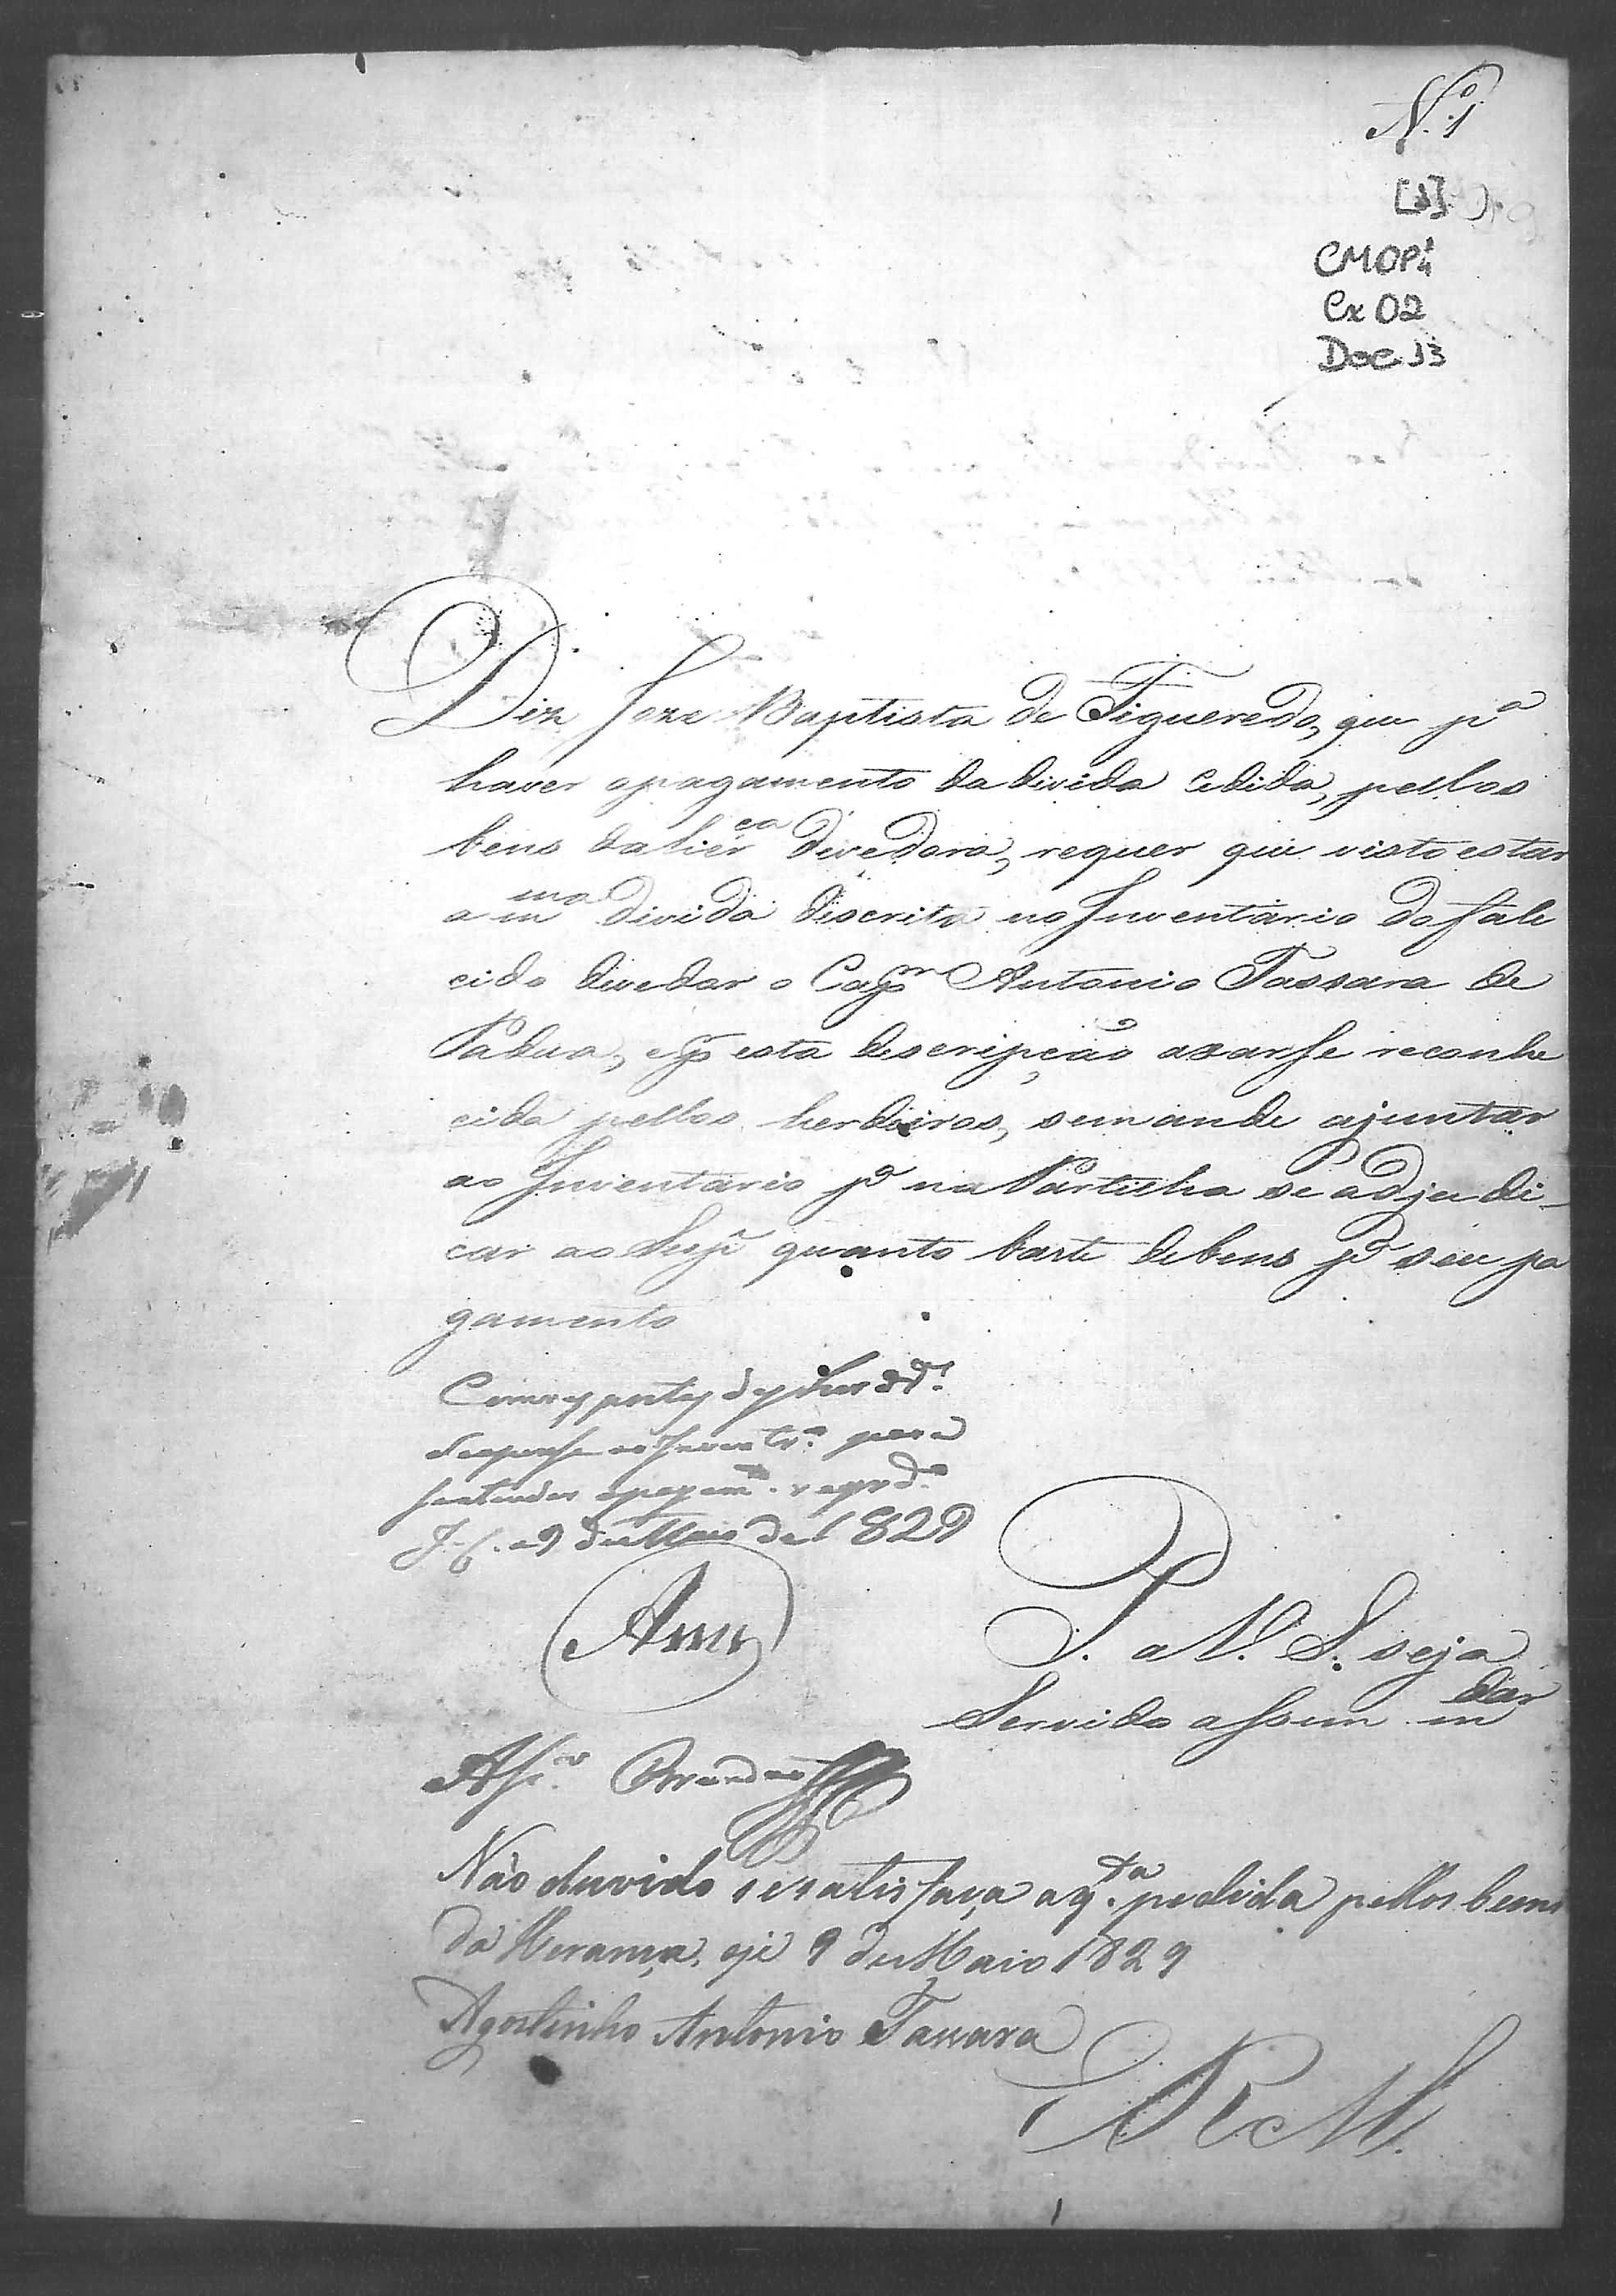 N.º 1
[1]
CMOP
Cx 02
Doc 13
Diz Joze Baptista de Figueredo, que pª
haver opagamento da divida cedida, pellos
bens daherᶜᵃ divedora, requer que visto estar
a mᵐᵃ divida discrita no Inventario do fale
cido divedor o Capᵐ Antonio Tassara de
Padua, e pʳ esta descripção axarse reconhe
cida pellos herdeiros, semande ajuntar
ao Inventario pª na Partilha se adjudi-
car ao Supᵉ quanto baste debens pª seu pa
gamento
para
9 de Maio de 1829
P. a V. S. seja
Servido assim mᵈᵃʳ
Não duvido se satisfaça a q.ᵗᵃ pedida pellos bens
da Herança, oje 9 de Maio 1829
Agostinho Antonio Tassara
E R M.